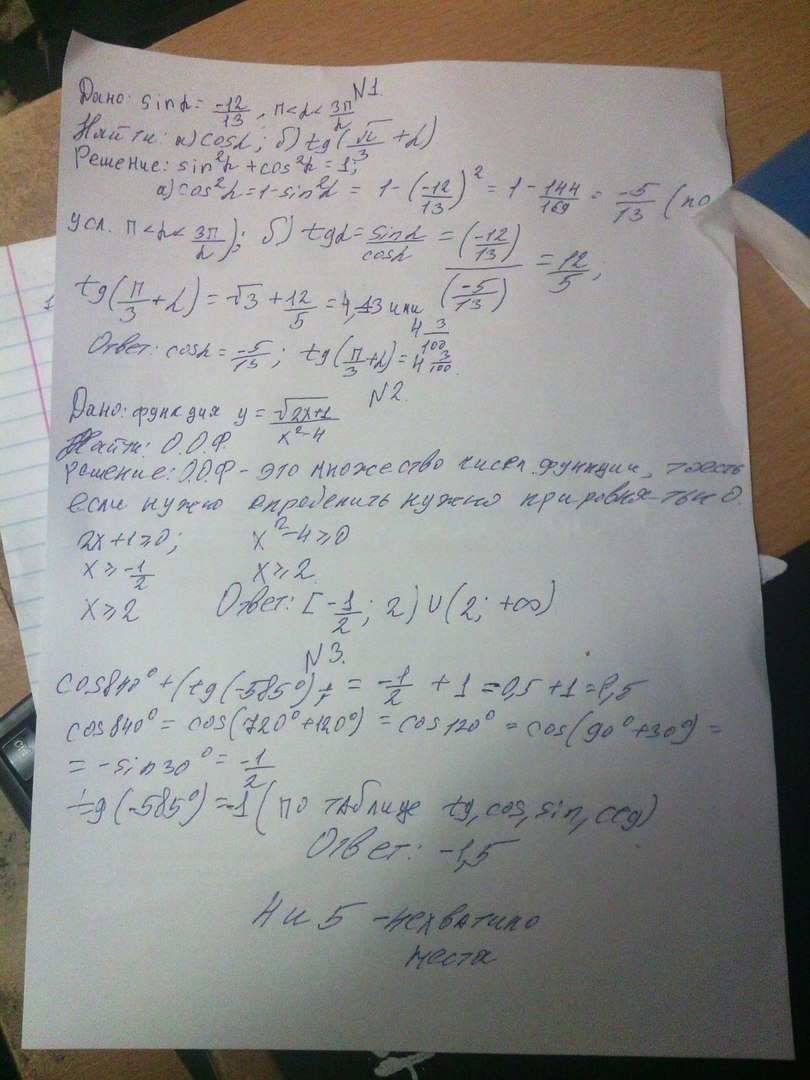 N1.
Дано: sinα = -12/13, π<α<3π/2
Найти: а) cosα; б) tg(π/3 + α)
Решение: sin²α + cos²α = 1;
а) cos²α = 1 - sin²α = 1 - (-12/13)² = 1 - 144/169 = -5/13 (по
усл. π<α<3π/2); б) tgα = sinα/cosα = (-12/13)/(-5/13) = 12/5;
tg(π/3 + α) = √3 + 12/5 = 4,13 или 4 3/100
Ответ: cosα = -5/13; tg(π/3 + α) = 4 3/100
N2.
Дано: функция y = √2x+1/x²-4
Найти: О.О.Ф.
Решение: О.О.Ф - это множество чисел функции, тоесть
если нужно определить нужно прировнять к 0.
2x+1≥0; x²-4≥0
x≥-1/2 x≥2
x≥2 Ответ: [-1/2; 2)∪(2; +∞)
N3.
cos840° + (tg(-585°) = -1/2 + 1 = 0,5 + 1 =
cos840° = cos(720°+120°) = cos120° = cos(90°+30°) =
= -sin30° = -1/2
tg(-585°) = -1 (по таблице tg, cos, sin, ctg)
Ответ: -1,5
4 и 5 - нехватило
места